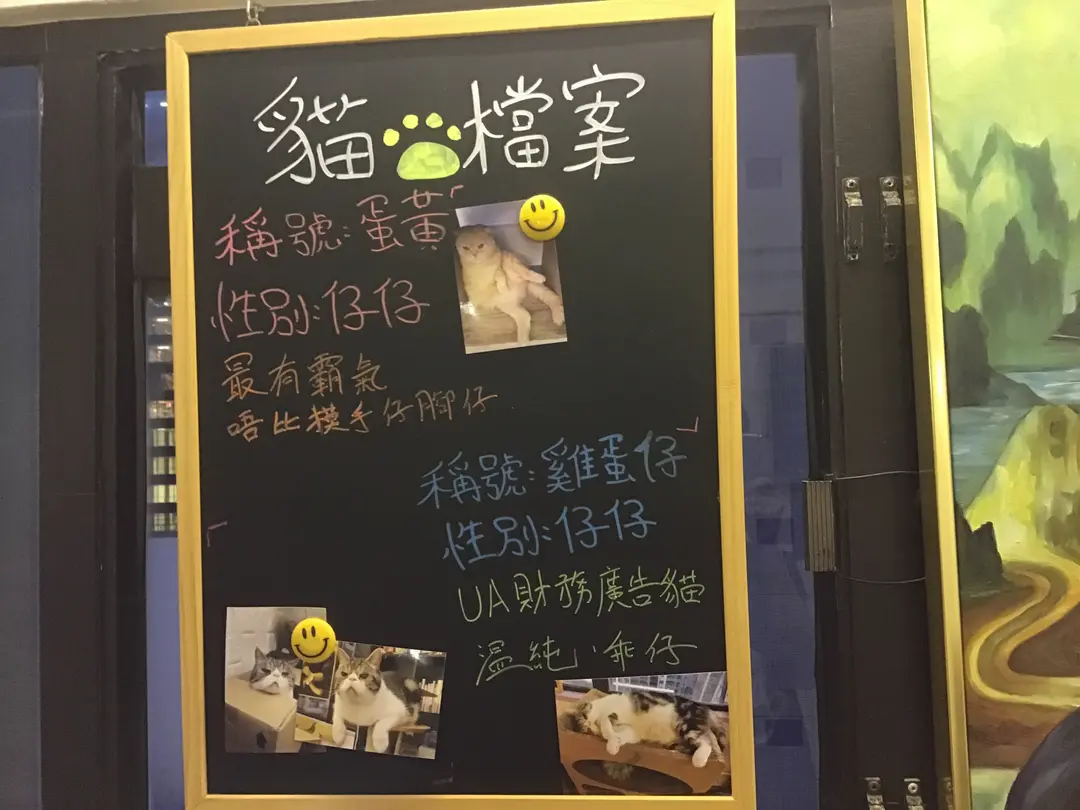 貓檔案
稱號:蛋黃
性別:仔仔
最有霸氣
唔比摸手仔腳仔
稱號:雞蛋仔
性別:仔仔
UA財務廣告貓
溫純,乖仔